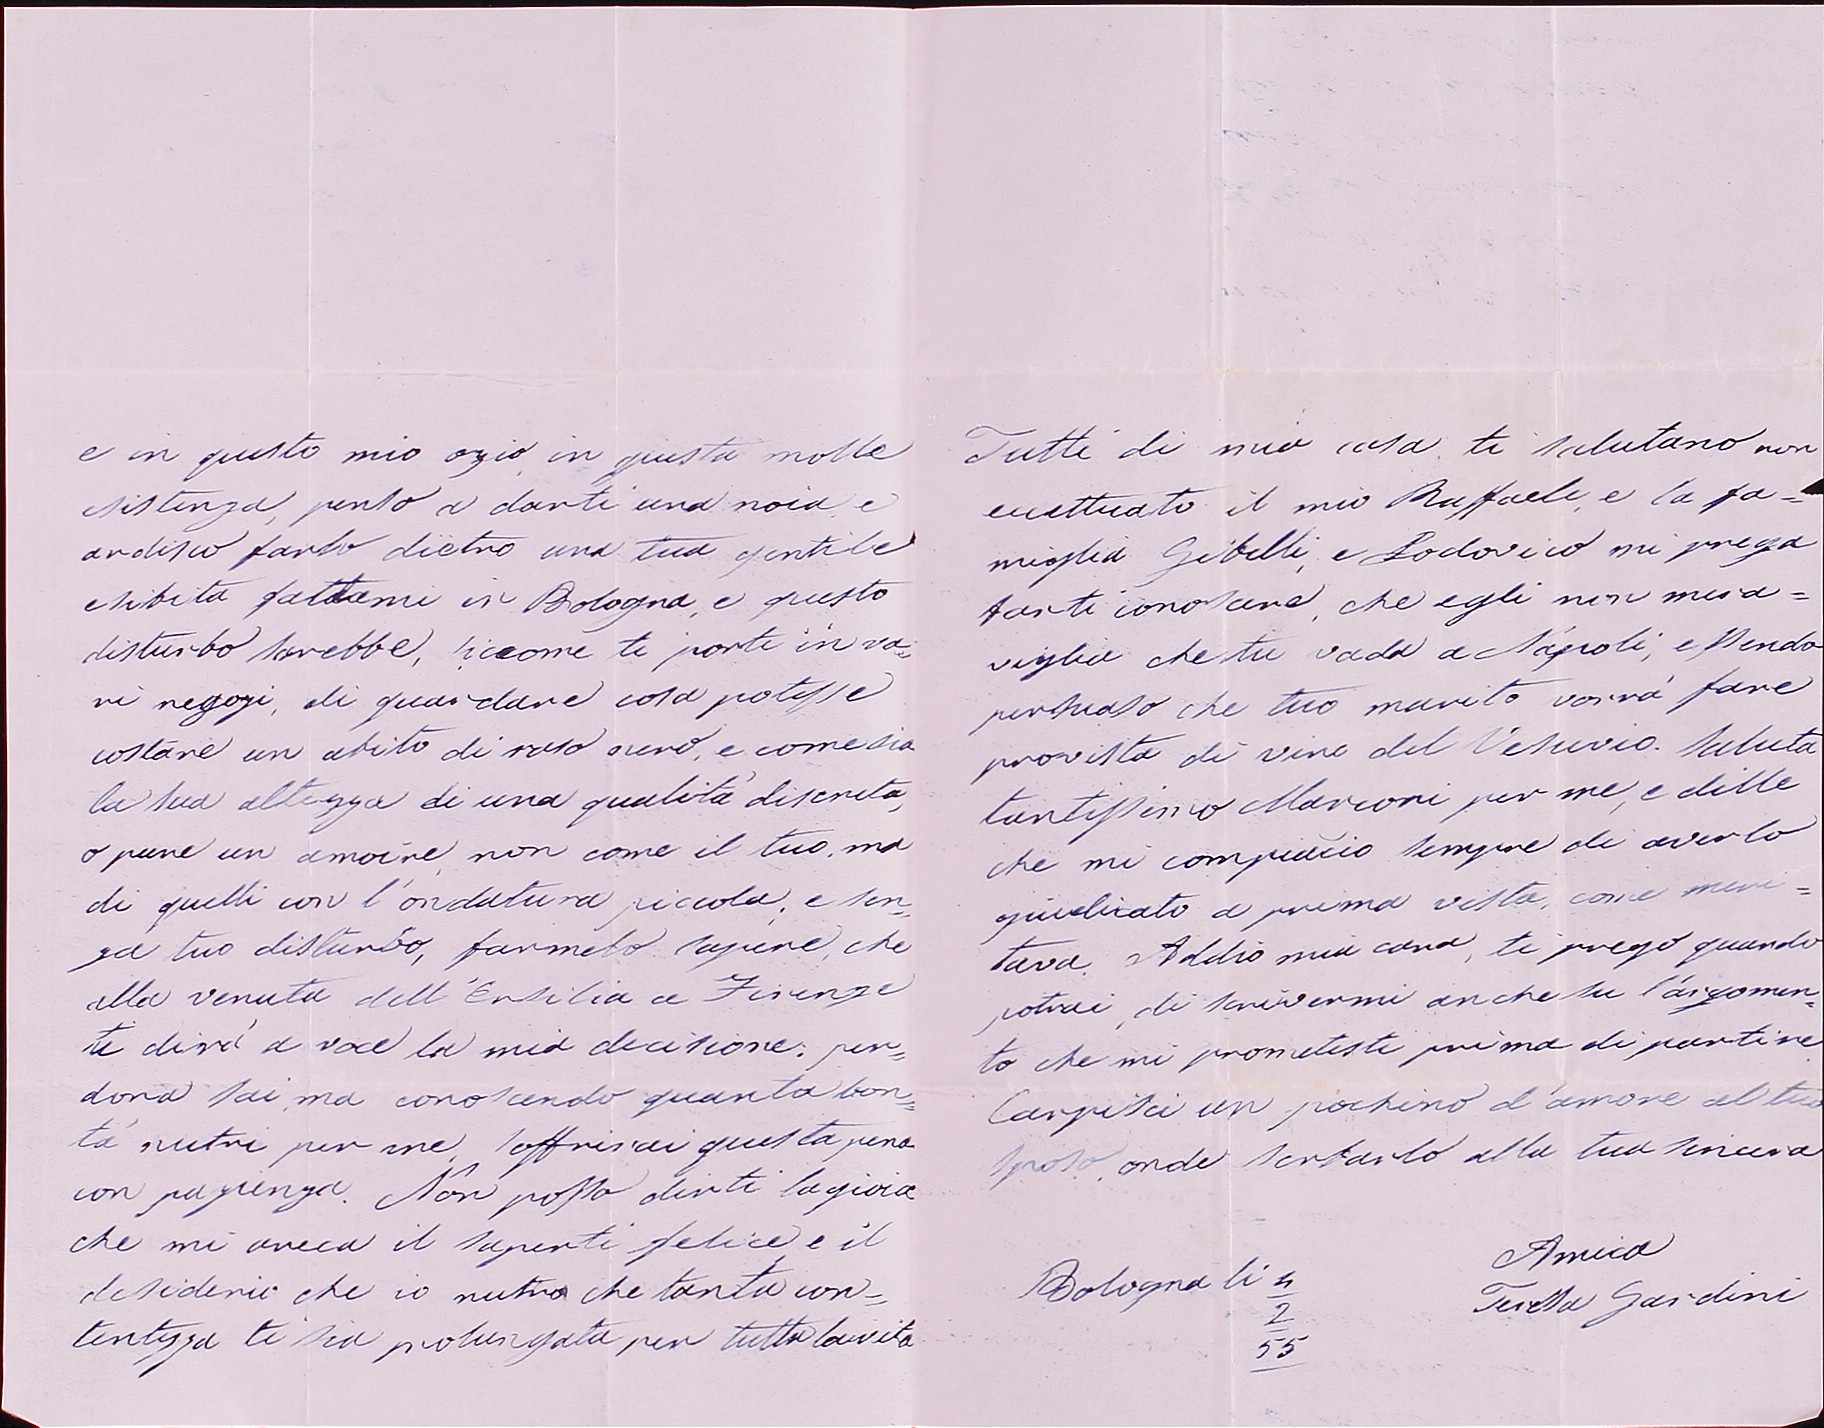 e in questo mio ozio, in questa molle
esistenza, penso a darti una noia, e
ardisco farlo dietro una tua gentile
esibita fattami in Bologna, e questo
disturbo sarebbe, siccome te porti in va=
ri negozi, di guardare cosa potesse
costare un abito di raso nero, e come sia
la sua altezza di una qualità discreta,
o pure un amoire, non come il tuo, ma
di quelli con l'ondatura piccola, e sen=
za tuo disturbo, farmelo sapere, che
alla venuta dell'Ersilia a Firenze
ti dirà a voce la mia decisione. per=
dona sai, ma conoscendo quanta bon=
tà nutri per me, soffrirai questa pena
con pazienza. Non posso dirti la gioia
che mi areca il saperti felice, e il
desiderio che io nutro che tanta con=
tentezza ti sia prolungata per tutta la vita
Tutti di mia casa ti salutano non
eccettuato il mio Raffaele, e la fa=
miglia Gibelli, e Lodovico mi prega
farti conoscere, che egli non mera=
viglia che tu vada a Napoli, essendo
persuaso che tuo marito vorrà fare
provista di vino del Vesuvio. Saluta
tantissimo Marconi per me, e dille
che mi compiaccio sempre di averlo
giudicato a prima vista, come meri=
tava. Addio mia cara, ti prego quando
potrai, di scrivermi anche su l'argomen=
to che mi prometesti prima di partire
Carpisci un pochino d'amore al tuo
sposo, onde serbarlo alla tua sincera
Amica
Teresa Gardini
Bologna li 4
2
55